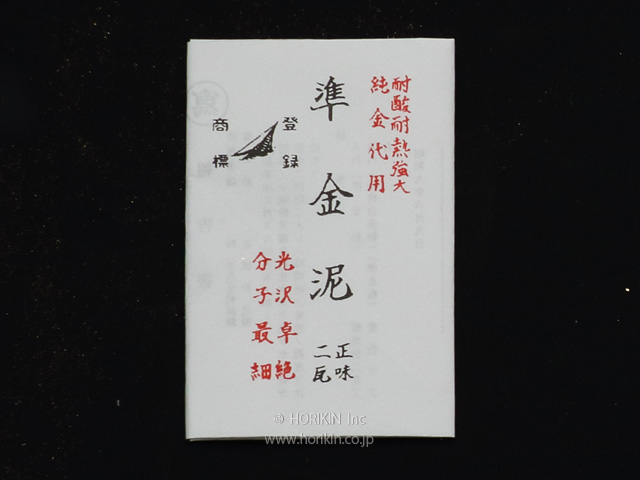 耐酸耐熱強大
純金代用
準金泥
正味
二瓦
登録
商標
光沢卓絶
分子最細
© HORIKIN Inc
www.horikin.co.jp